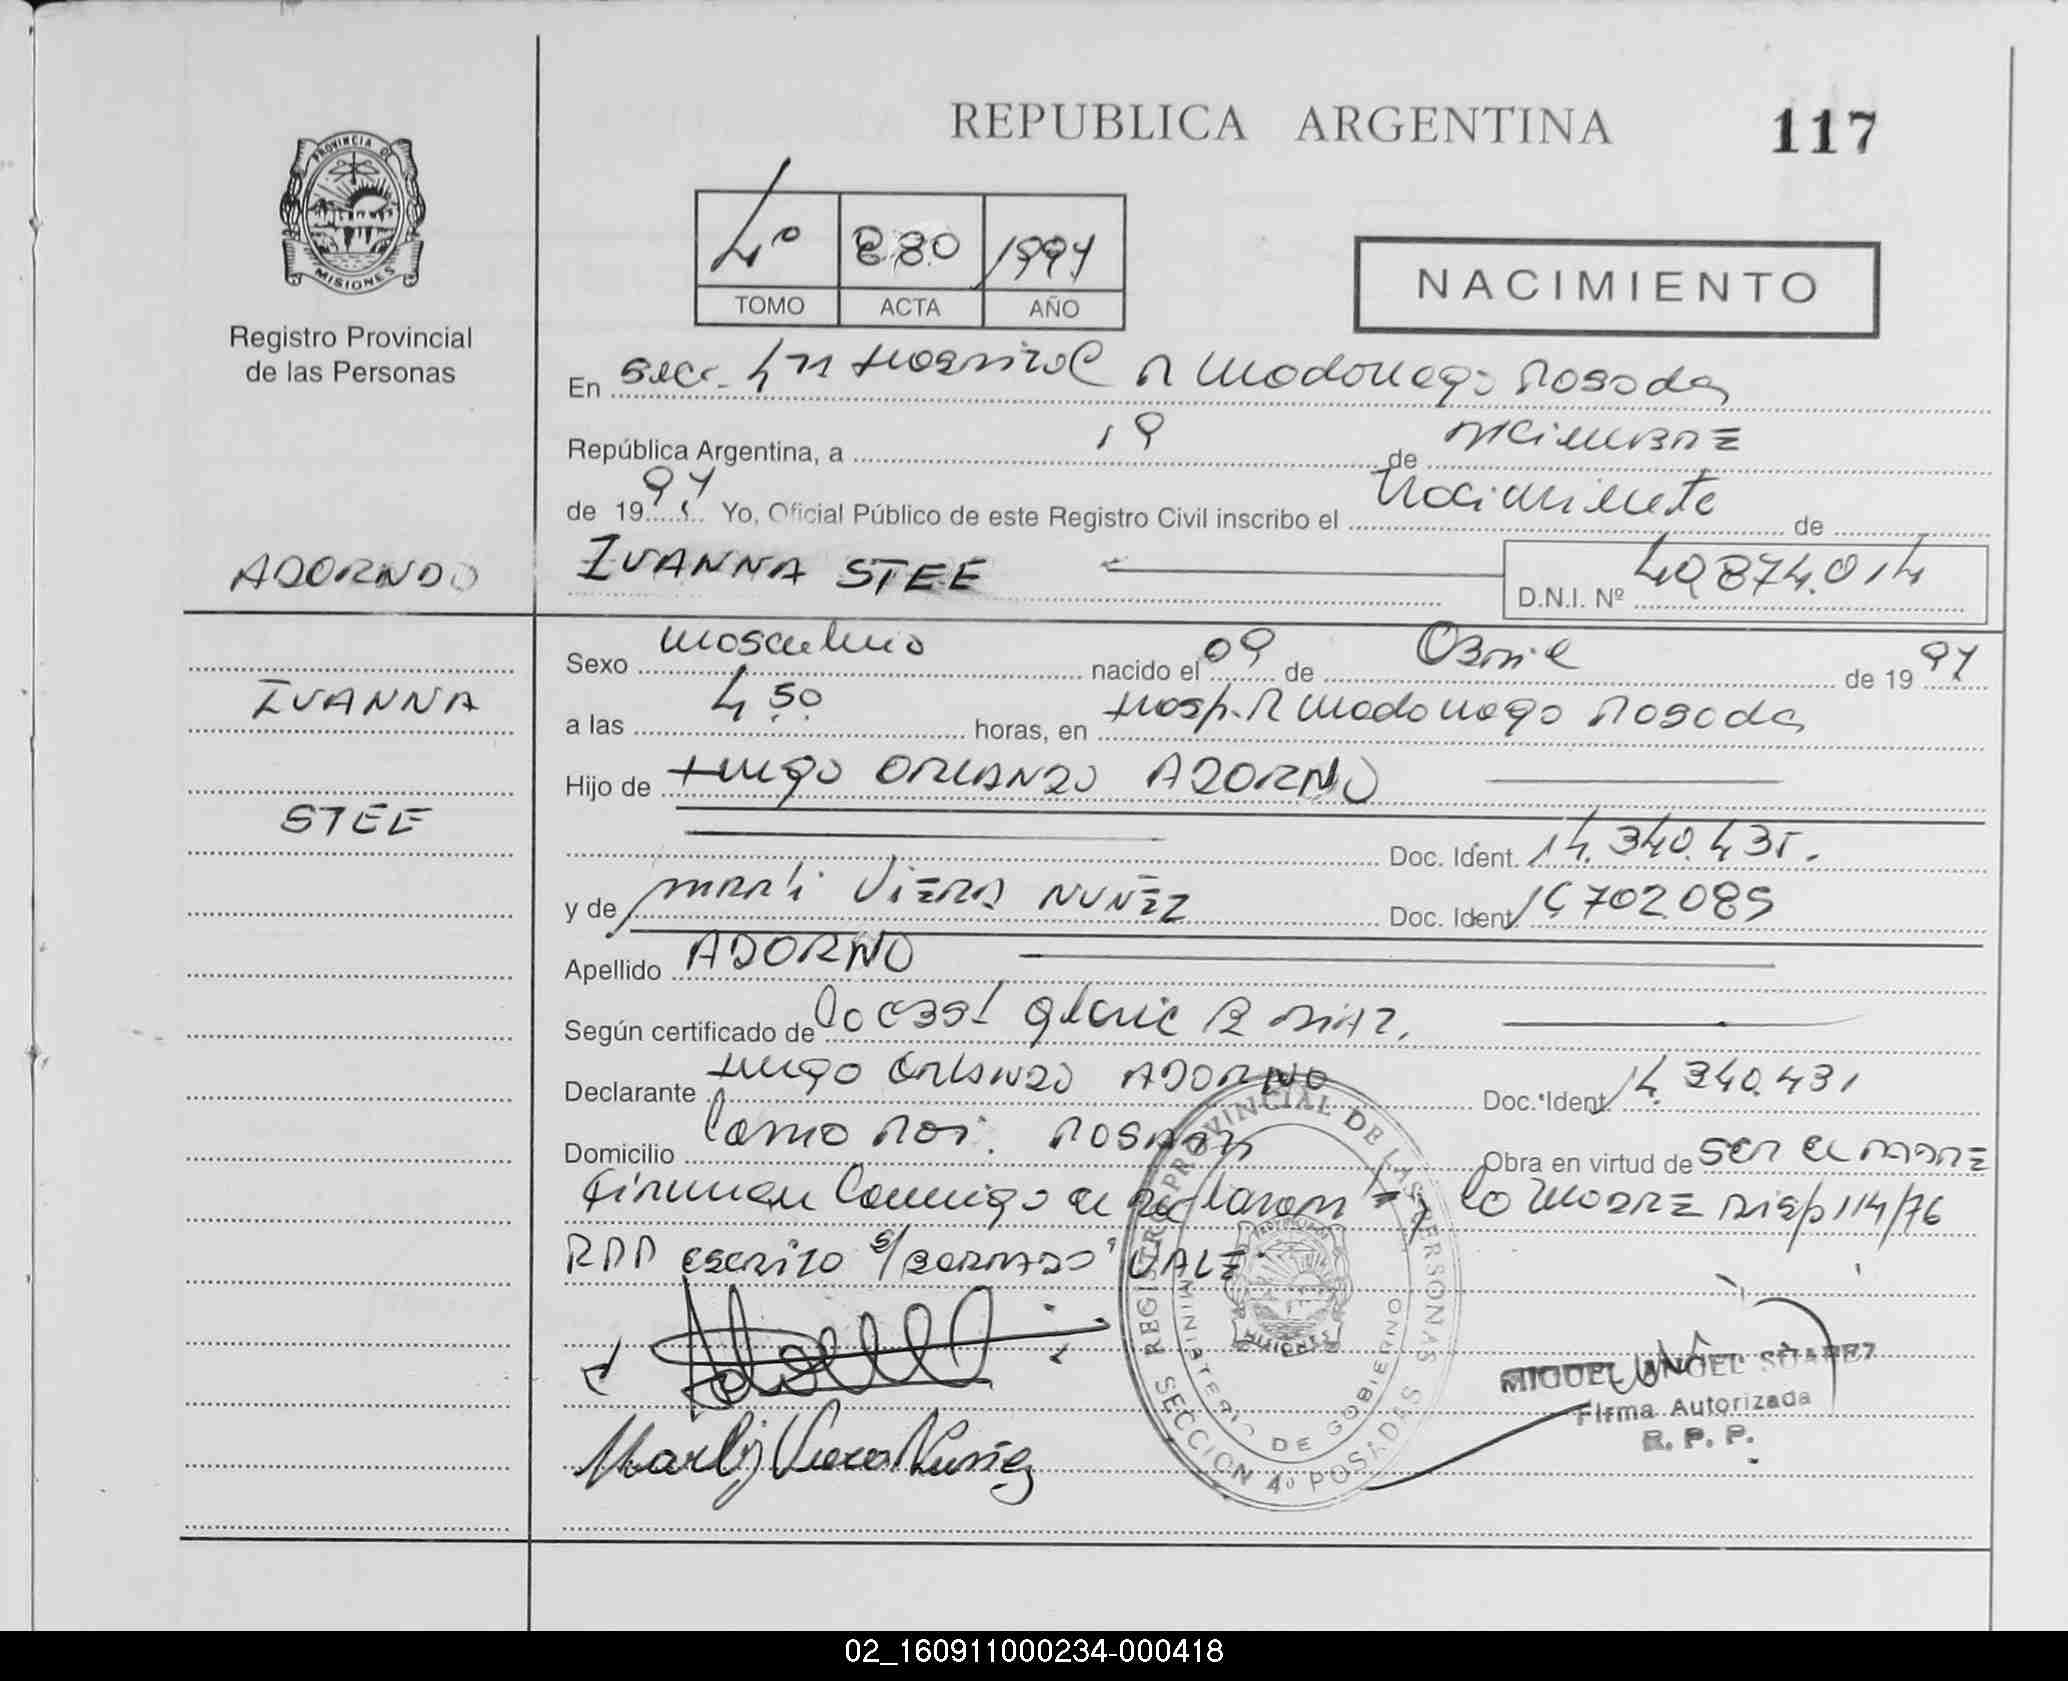 REPUBLICA ARGENTINA
117
PROVINCIA DE
MISIONES
Registro Provincial
de las Personas
4º 880 1997
TOMO ACTA AÑO
NACIMIENTO
En Secc. 4ta Hospital R Madariaga Posadas
República Argentina, a 19 de DICIEMBRE
de 1997 Yo, Oficial Público de este Registro Civil inscribo el Nacimiento de
ADORNO
IVANNA STEE D.N.I. Nº 40.874.014
Sexo Masculino nacido el 09 de Abril de 1997
IVANNA
a las 4,50 horas, en Hosp. R Madariaga Posadas
Hijo de Hugo ORLANDO ADORNO
STEE
Doc. Ident. 14.340.431.
y de MARLI VIERA NUÑEZ Doc. Ident.
Apellido ADORNO
Según certificado de
Declarante Hugo ORLANDO ADORNO Doc. Ident. 14.340.431
Domicilio POSADAS Obra en virtud de SER EL PADRE
Firman Conmigo el declarante y la MADRE Disp 114/76
RPP escrito s/BORRADO "VALE"
Marli Viera Nuñez
REGISTRO PROVINCIAL DE LAS PERSONAS
MINISTERIO DE GOBIERNO
MISIONES
SECCION 4º POSADAS
MIGUEL ANGEL SUAREZ
Firma Autorizada
R. P. P.
02_160911000234-000418